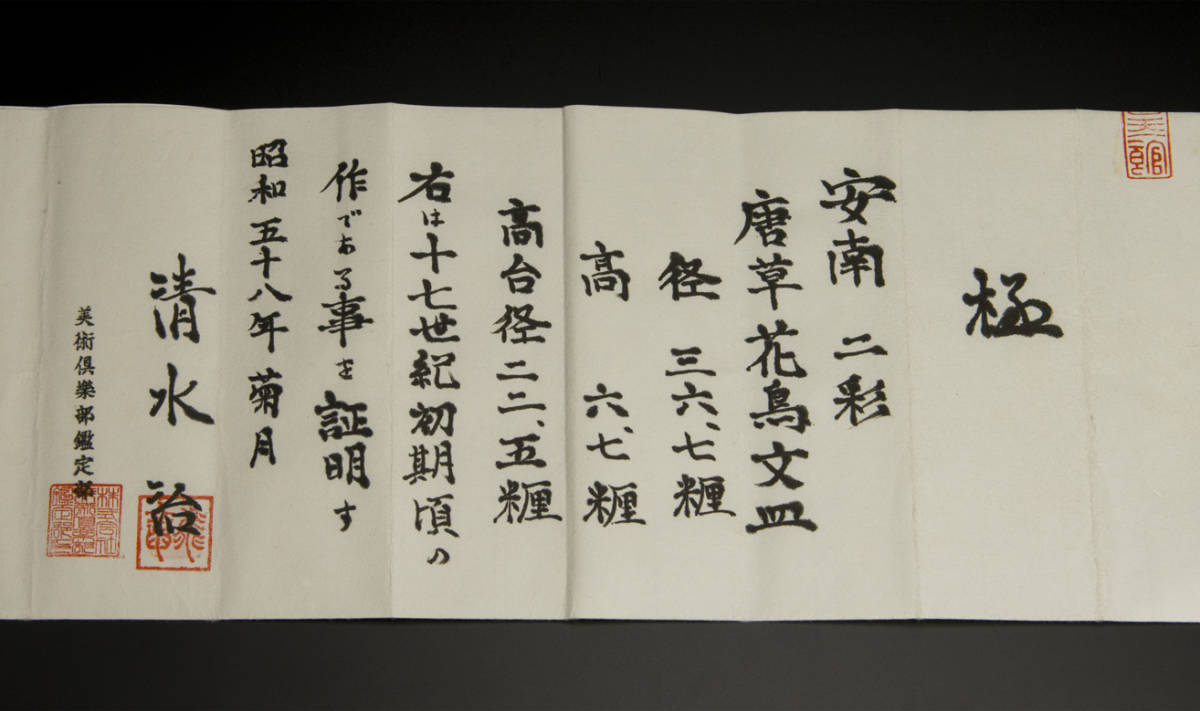 極
安南 二彩
唐草花鳥文皿
径 三六、七糎
高 六、七糎
高台径二二、五糎
右は十七世紀初期頃の
作である事を証明す
昭和五十八年 菊月
清水 治
美術倶楽部鑑定部